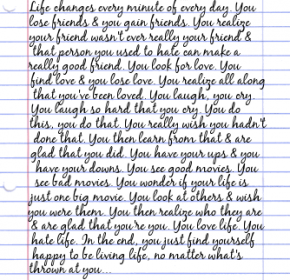 Life changes every minute of every day. You
lose friends & you gain friends. You realize
your friend wasn't ever really your friend &
that person you used to hate can make a
really good friend. You look for love. You
find love & you lose love. You realize all along
that you've been loved. You laugh, you cry.
You laugh so hard that you cry. You do
this, you do that. You really wish you hadn't
done that. You then learn from that & are
glad that you did. You have your ups & you
have your downs. You see good movies. You
see bad movies. You wonder if your life is
just one big movie. You look at others & wish
you were them. You then realize who they are
& are glad that you're you. You love life. You
hate life. In the end, you just find yourself
happy to be living life, no matter what's
thrown at you...